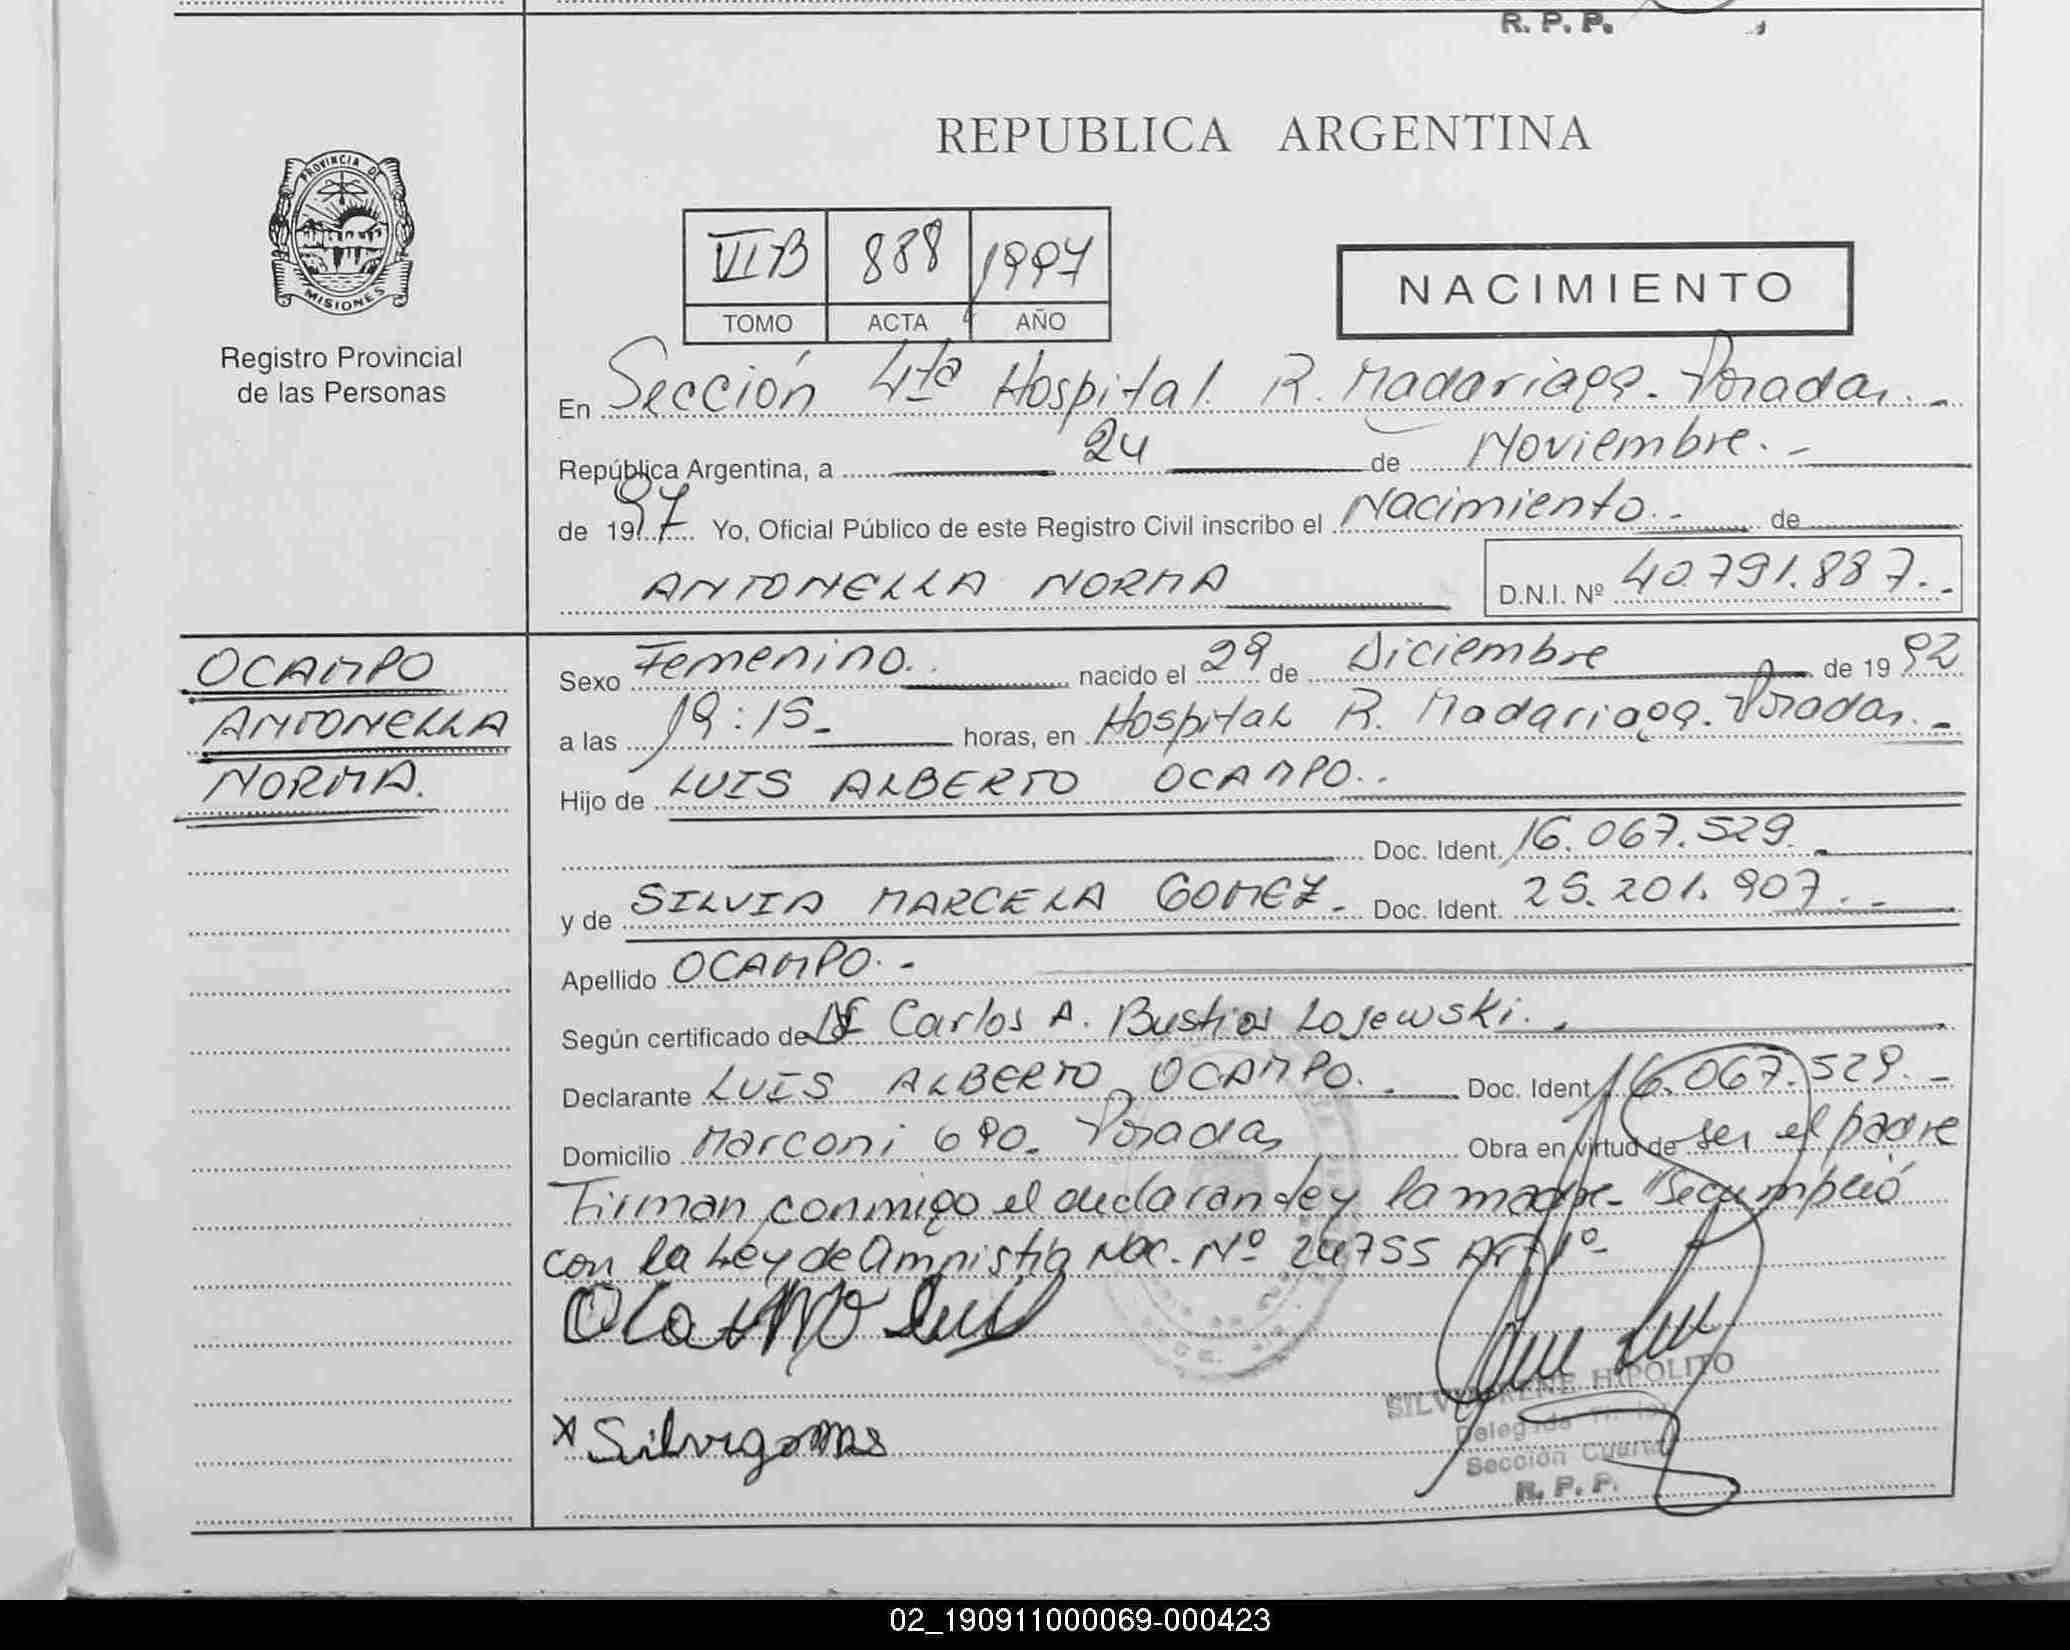 R. P. P.
REPUBLICA ARGENTINA
PROVINCIA DE
MISIONES
Registro Provincial
de las Personas
VI B 888 1997
TOMO ACTA AÑO
NACIMIENTO
En Sección 4ta Hospital R. Madariaga. Posadas. -
República Argentina, a 24 de Noviembre. -
de 1997 Yo, Oficial Público de este Registro Civil inscribo el Nacimiento. - de
ANTONELLA NORMA D.N.I. Nº 40.791.887. -
OCAMPO
ANTONELLA
NORMA.
Sexo Femenino. nacido el 29 de Diciembre de 1992
a las 19:15 horas, en Hospital R. Madariaga. Posadas. -
Hijo de LUIS ALBERTO OCAMPO..
Doc. Ident. 16.067.529. -
y de SILVIA MARCELA GOMEZ. Doc. Ident. 25.201.907. -
Apellido OCAMPO. -
Según certificado de Dr Carlos A. Bustos Lojewski. .
Declarante LUIS ALBERTO OCAMPO. . Doc. Ident 16.067.529. -
Domicilio Marconi 690. Posadas Obra en virtud de ser el padre
Firman conmigo el declarante y la madre- "Se cumplió
con la Ley de Amnistía Nac. Nº 24755 Art 1º-
Ocampo Luis
SILVIA IRENE HIPOLITO
Delegada
x Silvia gomes
Sección Cuarta
R. P. P.
02_190911000069-000423